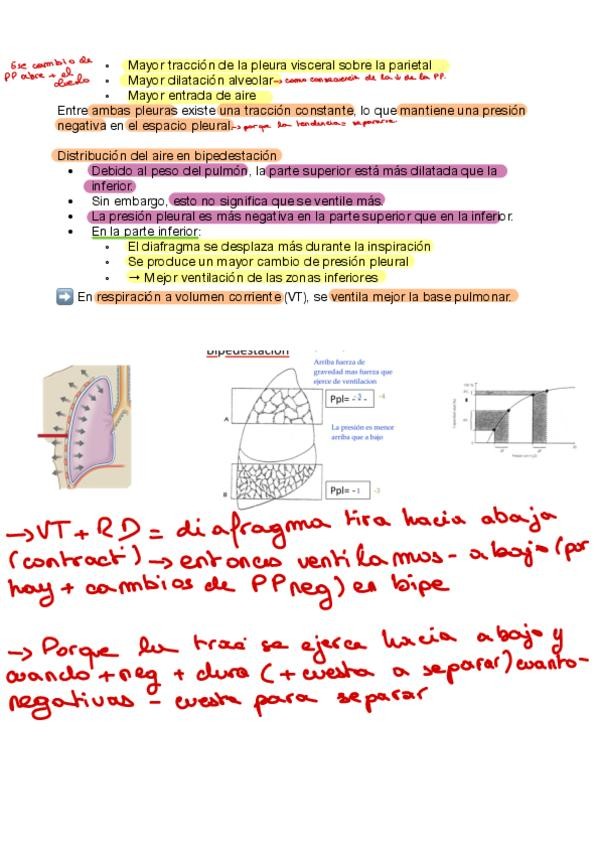 Ese cambio de
PP abre + el
alveolo
◦ Mayor tracción de la pleura visceral sobre la parietal
◦ Mayor dilatación alveolar → como consecuencia de la ↓ de la PP.
◦ Mayor entrada de aire
Entre ambas pleuras existe una tracción constante, lo que mantiene una presión
negativa en el espacio pleural. → porque la tendencia = separarse
Distribución del aire en bipedestación
• Debido al peso del pulmón, la parte superior está más dilatada que la
inferior.
• Sin embargo, esto no significa que se ventile más.
• La presión pleural es más negativa en la parte superior que en la inferior.
• En la parte inferior:
◦ El diafragma se desplaza más durante la inspiración
◦ Se produce un mayor cambio de presión pleural
◦ → Mejor ventilación de las zonas inferiores
➡ En respiración a volumen corriente (VT), se ventila mejor la base pulmonar.
Bipedestación
Arriba fuerza de
gravedad mas fuerza que
ejerce de ventilacion
A
Ppl= -4
La presión es menor
arriba que a bajo
B
Ppl= -1 -3
→ VT + RD = diafragma tira hacia abajo
(contract) → entonces ventilamos - abajo (por
hay + cambios de PP neg) en bipe
→ Porque la trac se ejerce hacia abajo y
cuando + neg + dura (+ cuesta a separar) cuanto -
negativas - cuesta para separar